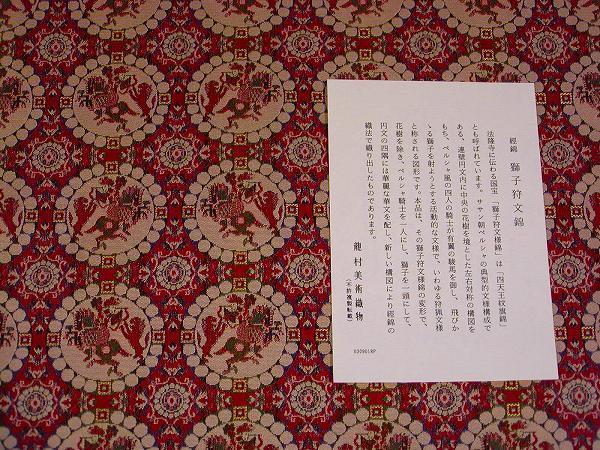 經錦 獅子狩文錦
法隆寺に伝わる国宝「獅子狩文様錦」は「四天王紋旗錦」
とも呼ばれています。ササン朝ペルシャの典型的文様構成で
ある、連璧円文内に中央の花樹を境とした左右対称の構図を
もち、ペルシャ風の四人の騎士が有翼の駿馬を御し、飛びか
ゝる獅子を射ようとする活動的な文様で、いわゆる狩猟文様
と称される図形です。本品は、その獅子狩文様錦の変形で、
花樹を除き、ペルシャ騎士を一人にし、獅子を一頭にして、
円文の四隅には華麗な華文を配し、新しい構図により經錦の
織法で織り出したものであります。
龍村美術織物
(不許複製転載)
030901RP